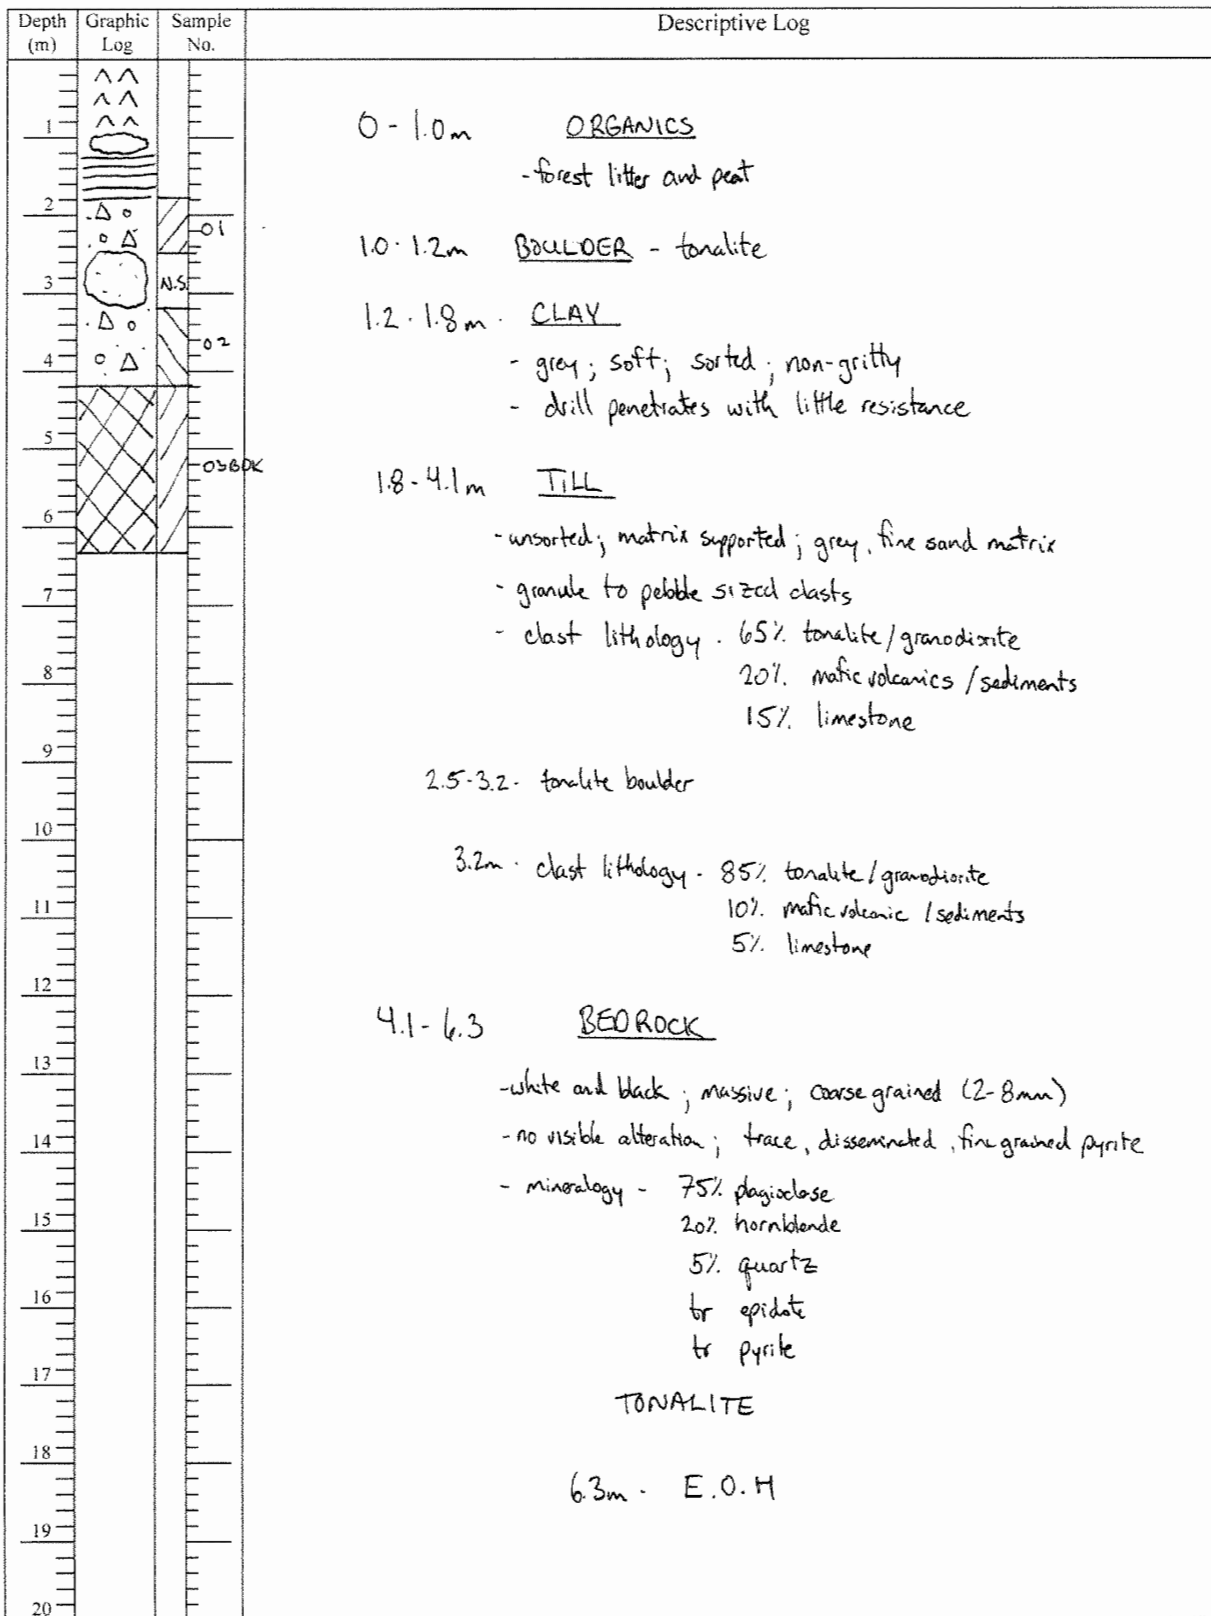 Depth (m) Graphic Log Sample No. Descriptive Log
0 - 1.0m ORGANICS
- forest litter and peat
1.0 - 1.2m BOULDER - tonalite
1.2 - 1.8m - CLAY
- grey; soft; sorted; non-gritty
- drill penetrates with little resistance
1.8 - 4.1m TILL
- unsorted; matrix supported; grey, fine sand matrix
- granule to pebble sized clasts
- clast lithology - 65% tonalite/granodiorite
20% mafic volcanics/sediments
15% limestone
2.5-3.2 - tonalite boulder
3.2m - clast lithology - 85% tonalite/granodiorite
10% mafic volcanic/sediments
5% limestone
4.1 - 6.3 BEDROCK
- white and black; massive; coarse grained (2-8mm)
- no visible alteration; trace, disseminated, fine grained pyrite
- mineralogy - 75% plagioclase
20% hornblende
5% quartz
tr epidote
tr pyrite
TONALITE
6.3m - E.O.H
1
2
01
3 N.S.
02
4
5
03BDK
6
7
8
9
10
11
12
13
14
15
16
17
18
19
20